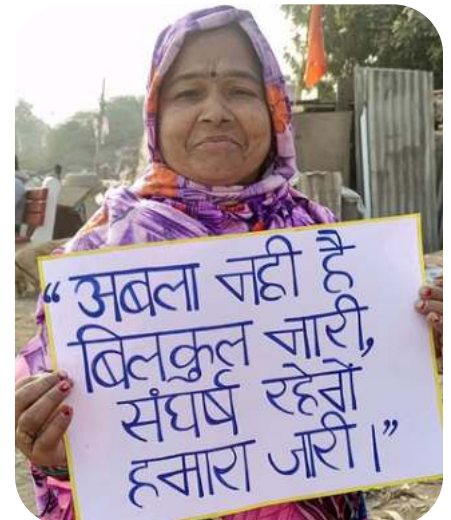 “अबला नही है
बिलकुल नारी,
संघर्ष रहेगो
हमारा जारी।”